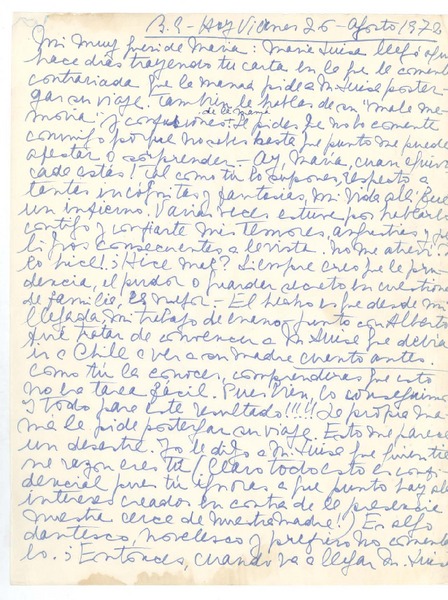 B.S - Hoy Viernes 26 - agosto 1978
Mi muy querida María: María Luisa llegó aquí
hace días trayendo tu carta en la que le comentas
contrariada que la mamá pide a M. Luisa poster-
gar su viaje. También le hablas de su "mala me-
moria" y confusiones de la mamá. Le pides que no lo comente
conmigo porque no sabes hasta que punto me puede
afectar o sorprender - Ay, María, cuan equivo
cada estás! Tal como tú lo supones, respecto a
tantas incógnitas y fantasías, mi vida allá fue
un infierno. Varias veces estuve por hablarte
contigo y confiarte mis temores angustias y pe
ligros consecuentes a la vista. No me atreví. No
lo hice! ¿Hice mal? Siempre creo que la pru
dencia, el pudor o guardar secreto en cuestiones
de familia, es mejor - El hecho es que desde mi
llegada mi trabajo de mano, junto con Alberto
fué tratar de convencer a M. Luisa que debía
ir a Chile a ver a su madre cuanto antes.
Como tú la conoces, comprenderás que esto
no era tarea fácil. Pues bien, lo conseguimos
y todo para este resultado!!!! La propia ma
má le pide postergar su viaje. Esto me parece
un desastre. Yo le digo a M. Luisa que quien tie
ne razón eres tú (Claro todo esto es confi
dencial pues tú ignoras a que punto hay allá
intereses creados en contra de la presencia
nuestra cerca de nuestra madre!) Es algo
dantesco, novelesco y prefiero no comentar
lo. ¡Entonces, cuando va a llegar M. Luisa